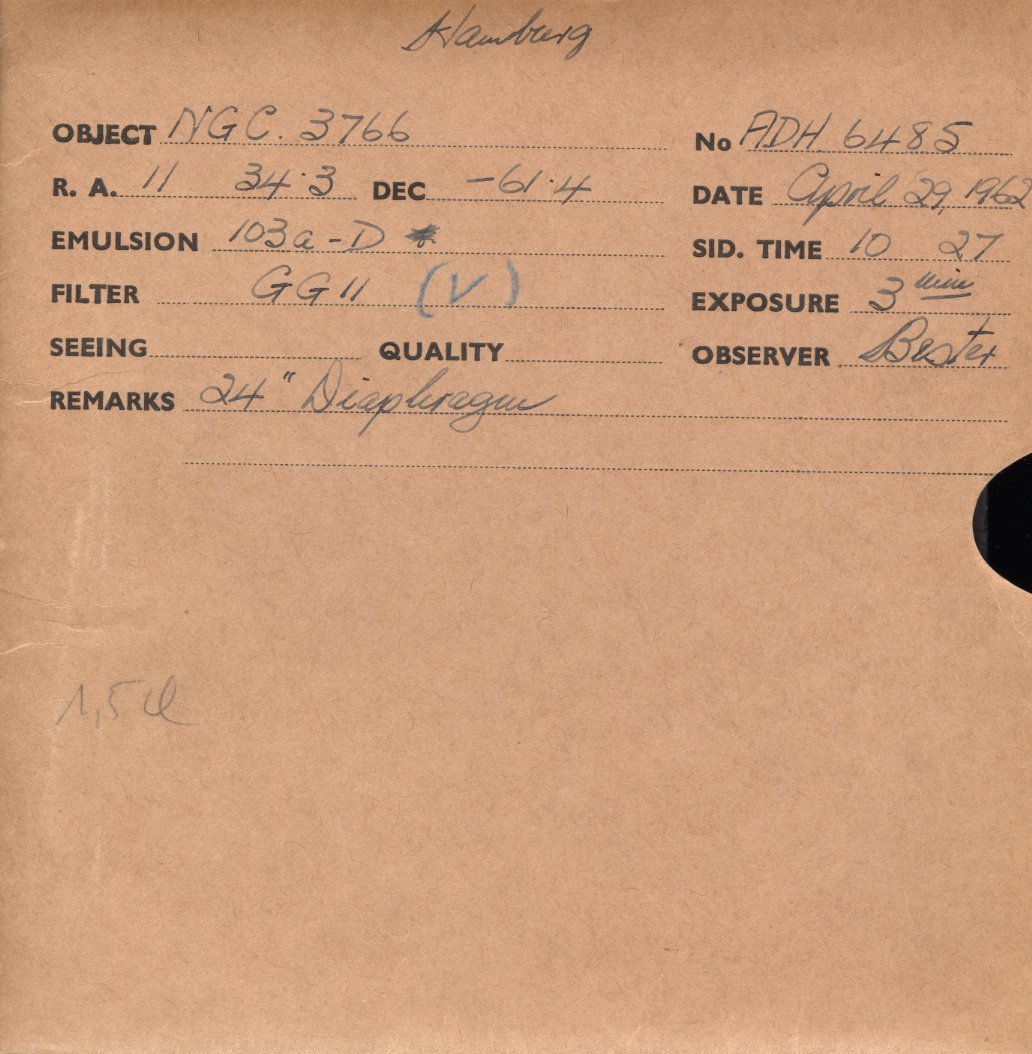 Hamburg
OBJECT NGC. 3766 No ADH 6485
R. A. 11 34.3 DEC -61.4 DATE April 29, 1962
EMULSION 103a-D * SID. TIME 10 27
FILTER GG11 (V) EXPOSURE 3 min
SEEING QUALITY OBSERVER Bester
REMARKS 24" Diaphragm